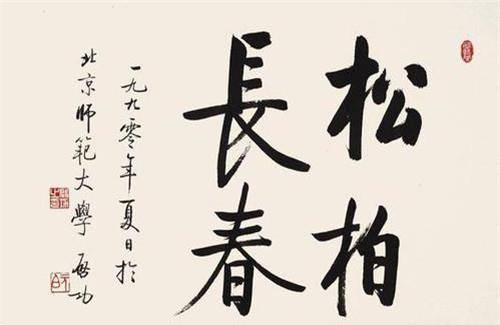 松柏
長春
一九九零年夏日於
北京师範大學启功